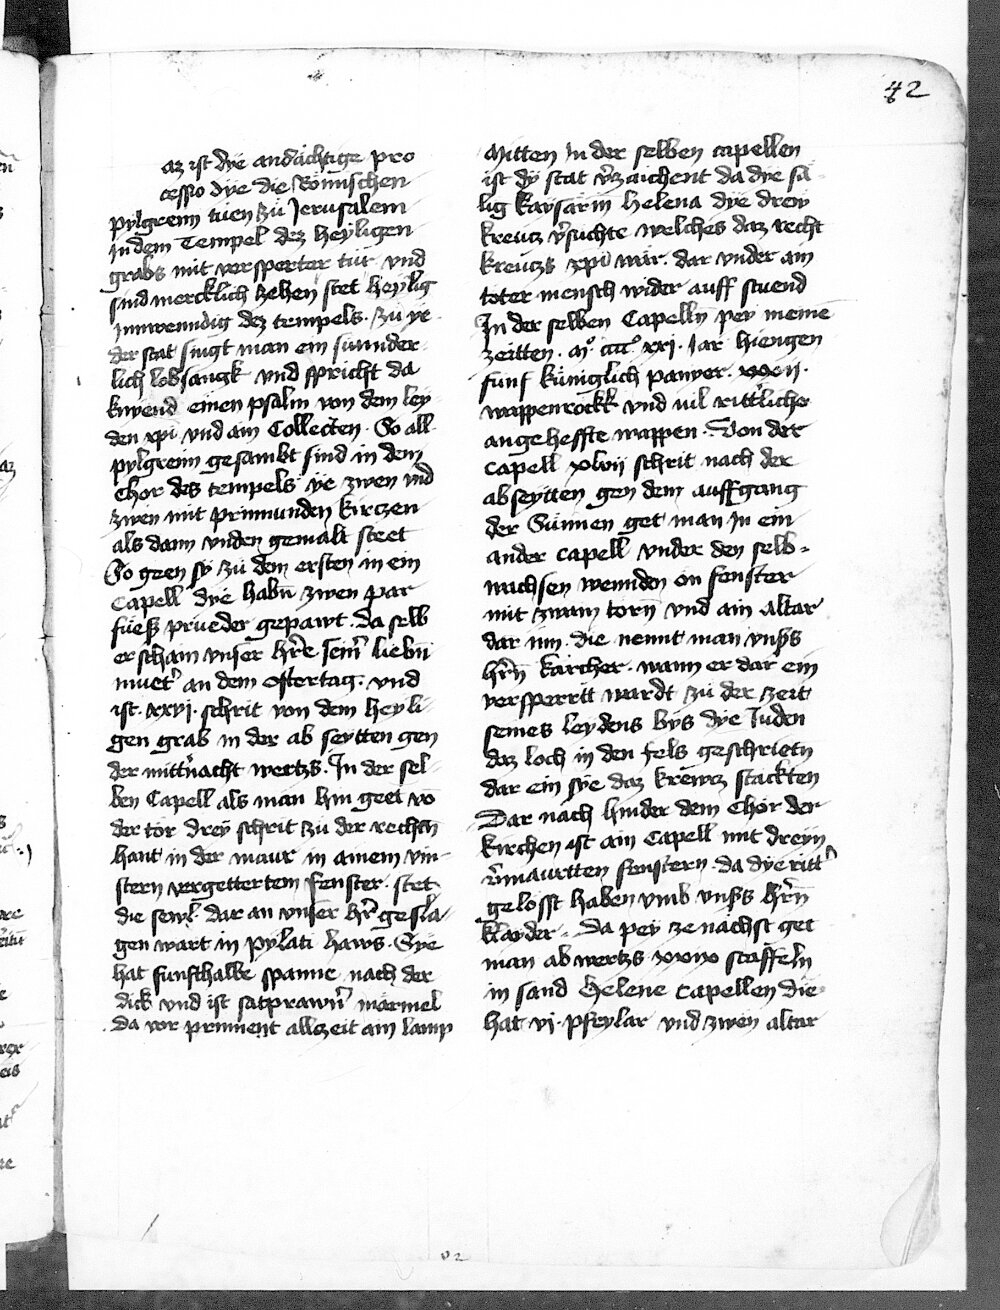 42
az ist dye andächtige pro
cesso dye die Römischen
pylgreim tuen zu Jerusalem
In dem Tempel dez heyligen
grabs mit versperter tür vnd
sind mercklich zehen stet heylig
Innwenndig dez tempels. zu ye
der stat singt man ein sunnder
lich lobsangk vnd spricht da
knyend einen psalm von dem ley
den xpi vnd ain Collecten. So all
pylgreim gesambt sind in dem
Chor des tempels ye zwen vnd
zwen mit prinnunden kirczen
als dann vnden gemalt steet
So geen sy zu dem ersten in ein
capell dye habn̄ zwen par
füess prueder gepawt. da selb
er schain vnser hr̄e seinr̄ liebn̄
muetʼ an dem ostertag. vnd
ist. xxvj. schrit von dem heyli
gen grab in der ab seytten gen
der mittʼnacht wertzs. In der sel
ben Capell als man hin geet vō
der tör drey schrit zu der rechtn̄
hant in der maur in ainem vin
stern vergettertem fenster. stet
die sewl. dar an vnser hr̄ gesla
gen wart in pylati haws. Sye
hat funfthalbe spanne nach der
dick vnd ist satprawn̄ marmel
da vor prinnent allzeit ain lamp
Mitten In der selben capellen
ist dy stat vʼzaichent da dye sä
lig kaysarin helena dye drey
kreucz vʼsuchte welches daz recht
kreuczs xpi wär. dar vnder ain
toter mensch wider auff stuend
In der selben Capelln pey meinē
zeitten. mͦ cccc xxi. Jar hiengen
funf küniglich panyer. xxx ij.
wappenröckk vnd vil rittʼliche
angeheffte wappen. Von der
capell xlvij schrit nach der
abseytten gen dem auffgang
der Sunnen get man In ein
ander capell vnder den selb-
wachsen wennden ōn fenster
mit zwain törn̄ vnd ain altar
dar inn. die nennt man vnsʼs
hr̄n̄ kärcher. wann er dar ein
versperrtt wardt zu der zeit
seines leydens bys dye Juden
daz loch in den fels geschrietn̄
dar ein sye daz krewcz stackten
Dar nach hinder dem Chor der
kirchen ist ain Capell mit dreyn
vʼmaurtten fenstern. da dye rittʼ
gelösst haben vmb vnsʼs hr̄n̄
klayder. Da pey ze nächst get
man ab wertzs xxix staffeln
in sand helene capellen die
hat vj. pfeylar vnd zwen altar